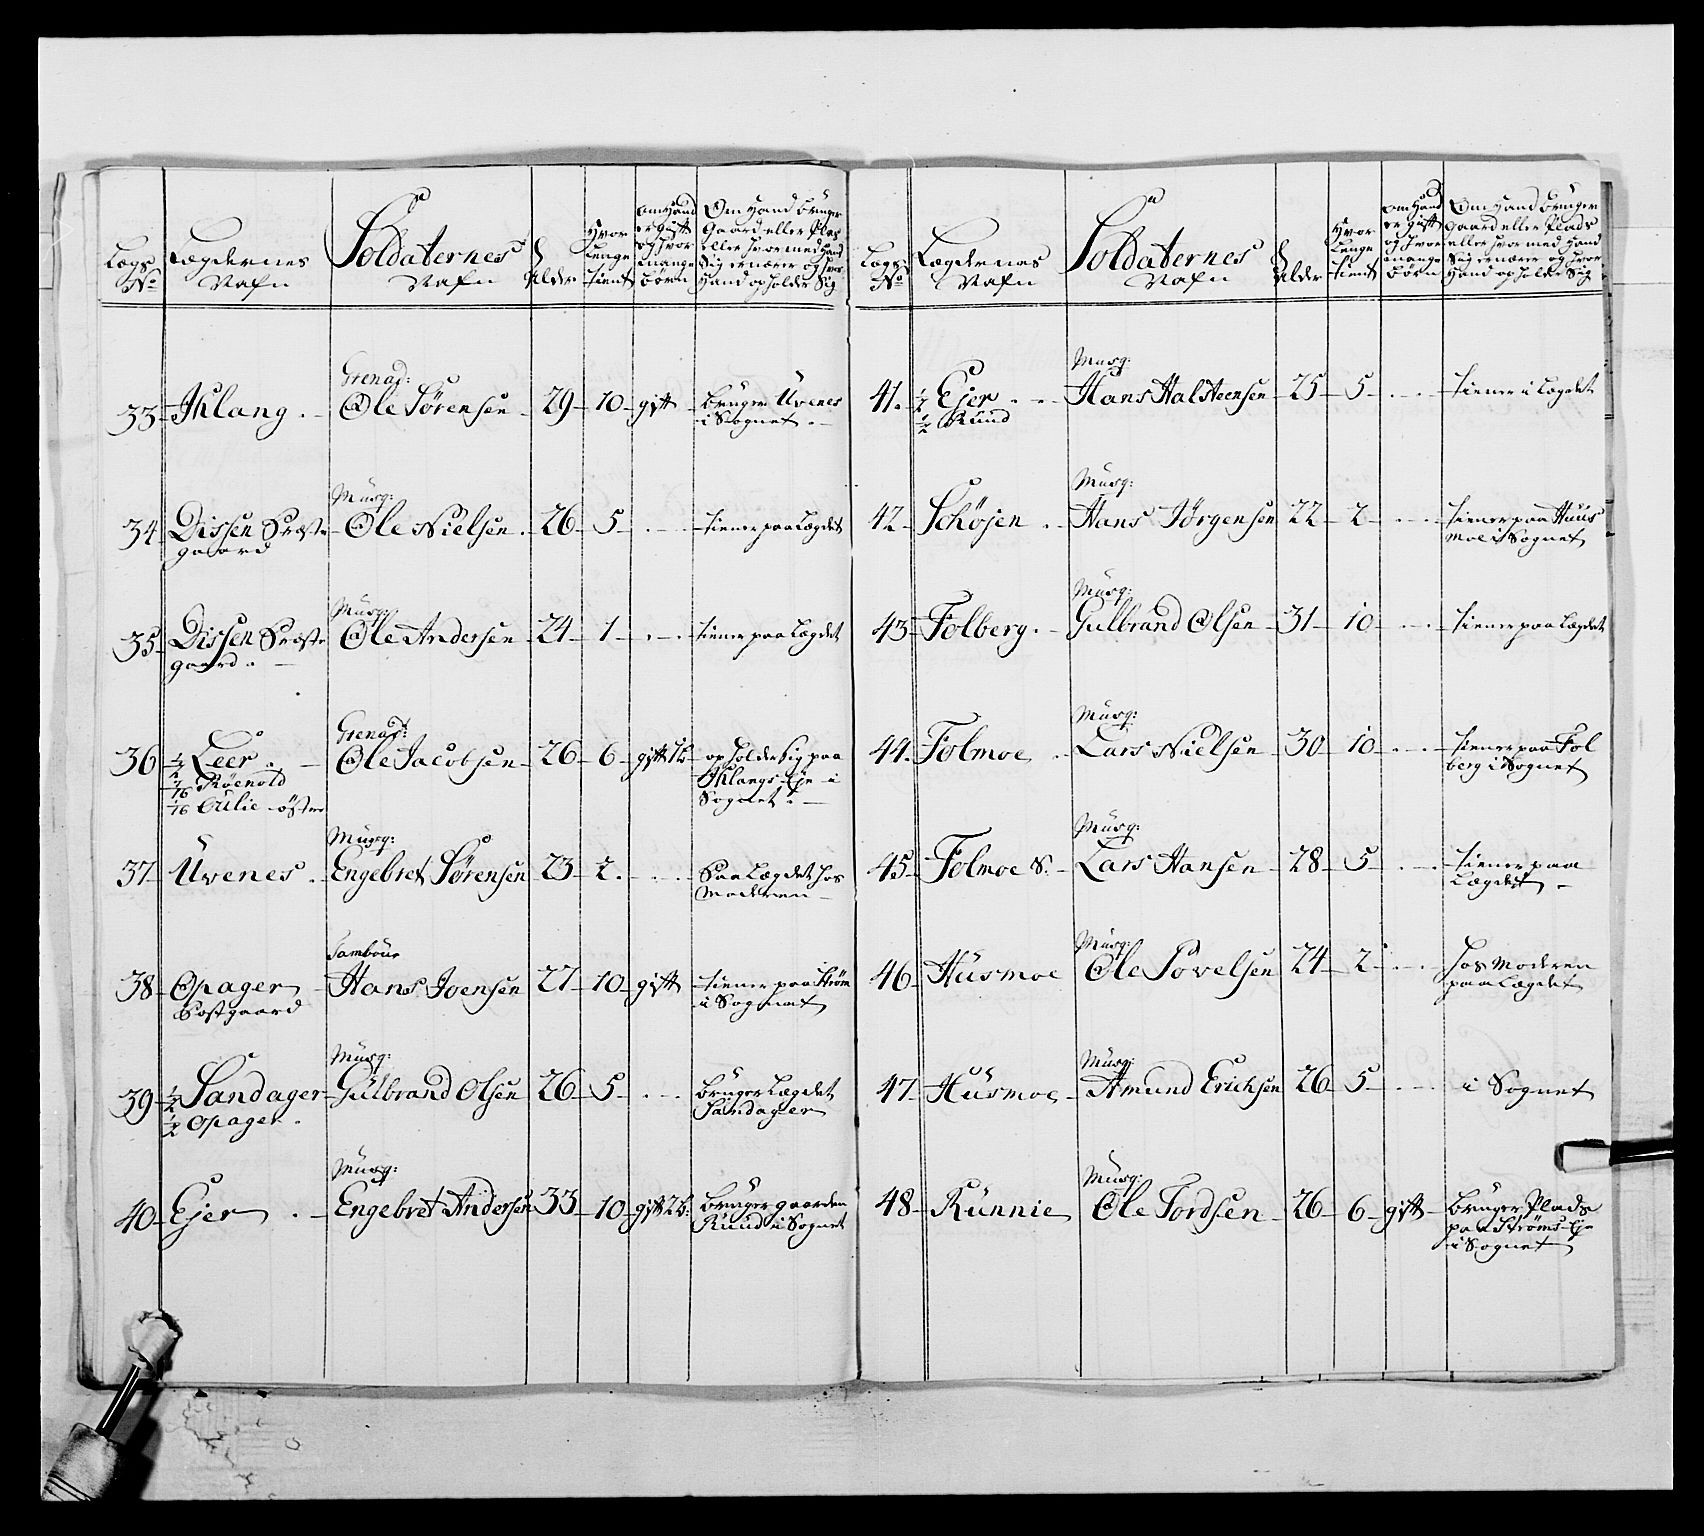 Lægs No
Lægdernes Nafn
Soldaternes Nafn
Alder
Hvor Lenge tient
Om Hand er gift og hvor mange Børn
Om Hand bruger Gaard eller Plads eller hvormed Hand Sig ernærer og hvor Hand opholder Sig
33 Ihlang Grenad: Ole Sørensen 29 10 gift bruger Uvenes
i Sognet
34 Dissen Præste Musq: Ole Nielsen 26 5 tiener paa Lægdet
gaard
35 Dissen Præste Musq: Ole Andersen 24 1 tiener paa Lægdet
gaard
36 1/2 Leer Grenad: Ole Jacobsen 26 6 gift 1b opholder Sig paa
7/16 Røenold Ihlangs Eje i
1/16 Bilie øster Sognet
37 Uvenes Musq: Engebret Sørensen 23 2 Paa Lægdet hos
Moderen
38 Opager Tambour Hans Joensen 27 10 gift tiener paa Strøm
Postgaard i Sognet
39 1/2 Sandager Musq: Gulbrand Olsen 26 5 bruger Lægdet
1/2 Opager Sandager
40 Ejer Musq: Engebret Andersen 33 10 gift 2b: bruger gaarden
Ruud i Sognet
Lægs No
Lægdernes Nafn
Soldaternes Nafn
Alder
Hvor Lenge tient
Om Hand er gift og hvor mange Børn
Om Hand bruger Gaard eller Plads eller hvor med Hand Sig ernærer og hvor Hand opholder Sig
41 1/2 Ejer Musq: Hans Halsteensen 25 5 tiener i Lægdet
1/2 Ruud
42 Schøjen Musq: Hans Jørgensen 22 2 tiener paa Huus
moe i Sognet
43 Folberg Musq: Gulbrand Olsen 31 10 tiener paa Lægdet
44 Folmoe Musq: Lars Nielsen 30 10 tiener paa Fol
berg i Sognet
45 Folmoe S. Musq: Lars Hansen 28 5 tiener paa
Lægdet
46 Husmoe Musq: Ole Povelsen 24 2 hos Moderen
paa Lægdet
47 Husmoe Musq: Amund Ericksen 26 5 i Sognet
48 Runnie Musq: Ole Tordsen 26 6 gift bruger Plads
paa Strøms Eje
i Sognet